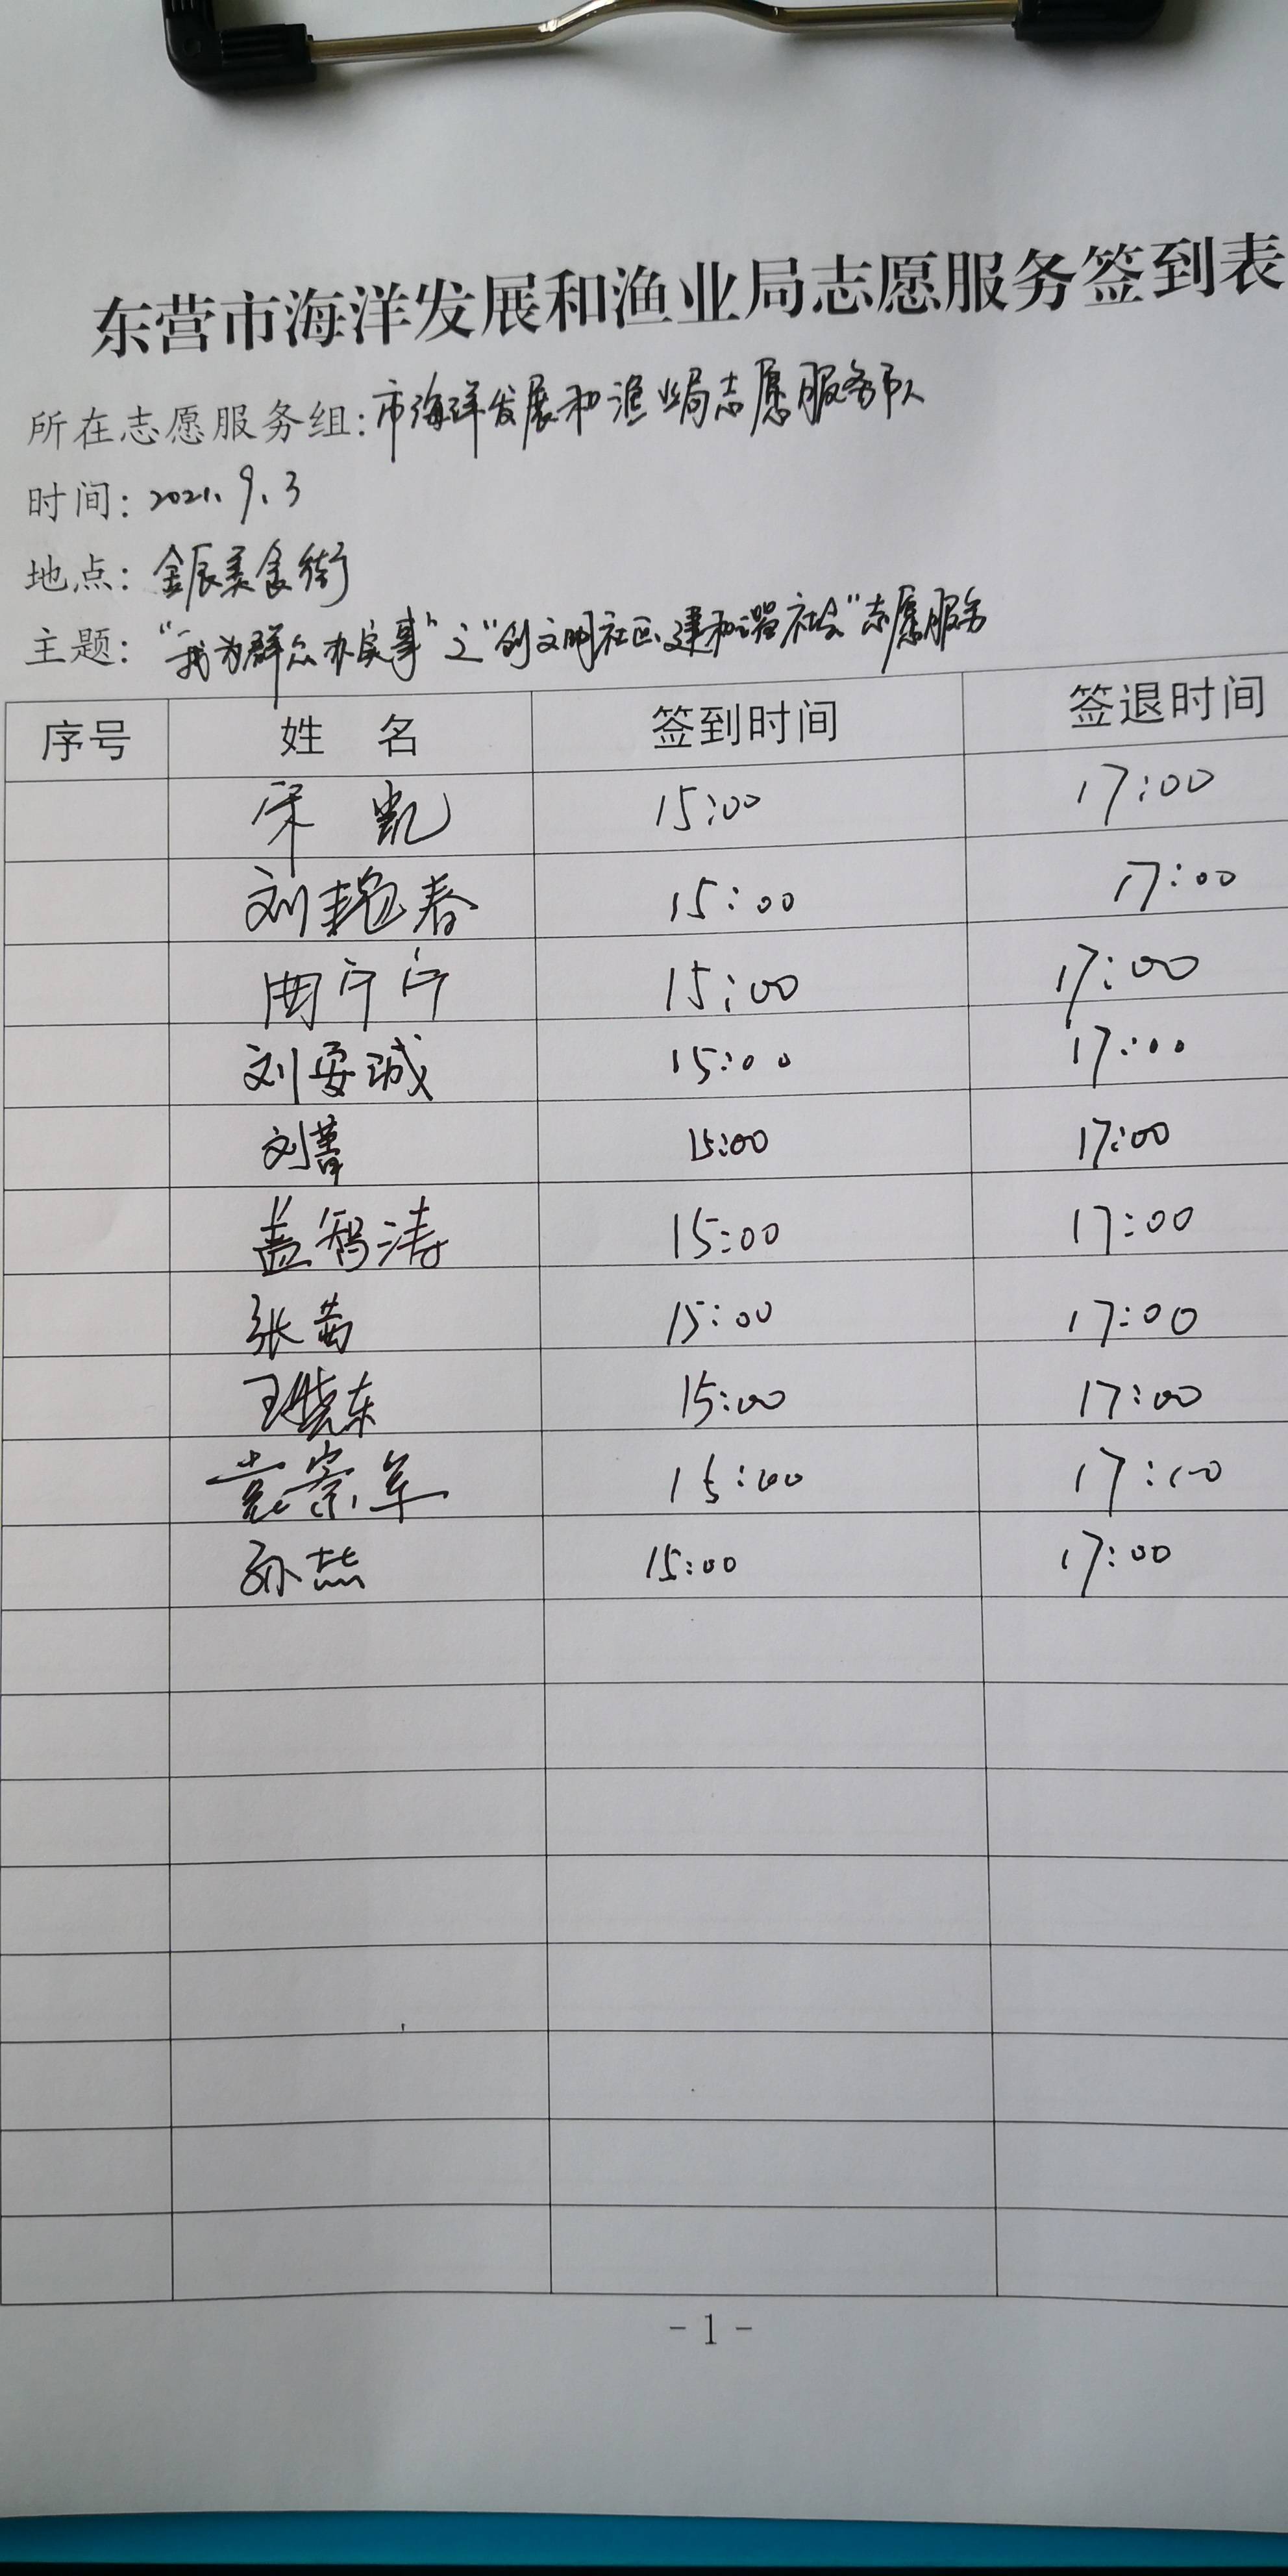 东营市海洋发展和渔业局志愿服务签到表
所在志愿服务组:市海洋发展和渔业局志愿服务队
时间: 2021.9.3
地点: 金辰美食街
主题: “我为群众办实事”之“创文明社区、建和谐社会”志愿服务
序号 姓 名 签到时间 签退时间
宋 凯 15:00 17:00
刘艳春 15:00 17:00
曲宁宁 15:00 17:00
刘安诚 15:00 17:00
刘菁 15:00 17:00
盖智涛 15:00 17:00
张茜 15:00 17:00
王晓东 15:00 17:00
袁宗军 15:00 17:00
孙燕 15:00 17:00
- 1 -